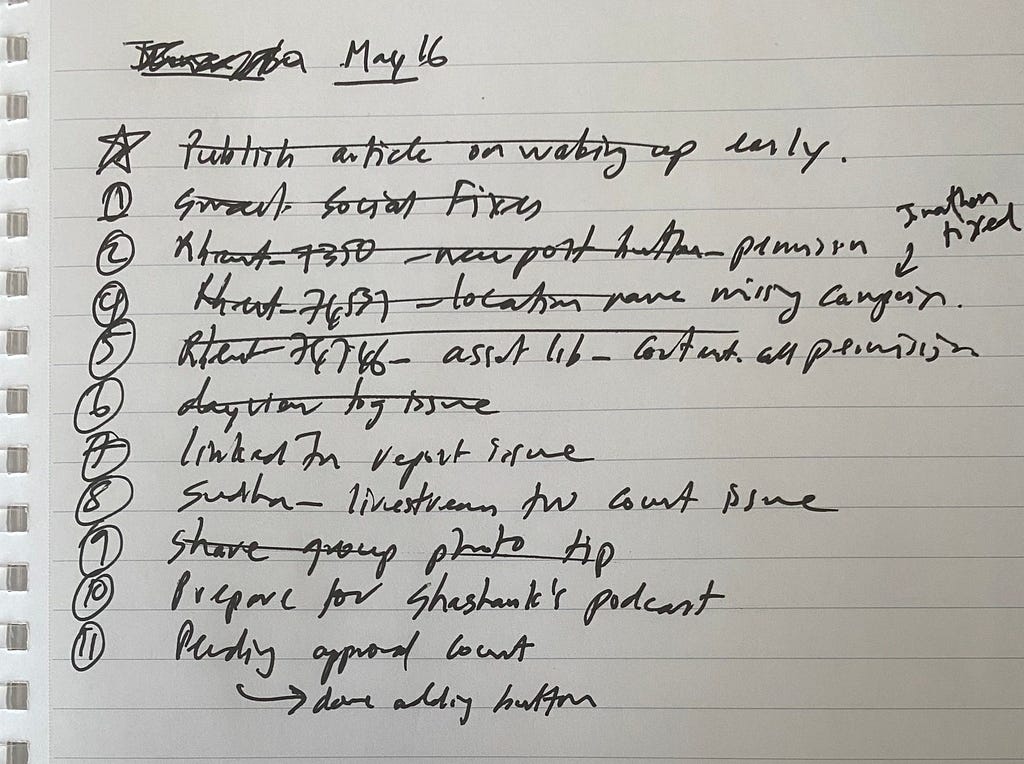 May 16
Publish article on waking up early.
1 social fixes
2 7350 - new post button - permission
Jnathan
fixed
4 - location name missing campaign.
5 74746 - asset lib - content. all permission
6 dayview log issue
7 linkedIn report issue
8 Sudha - livestream count issue
9 Share group photo tip
10 Prepare for Shashank's podcast
11 Pending approval count
→ done adding button